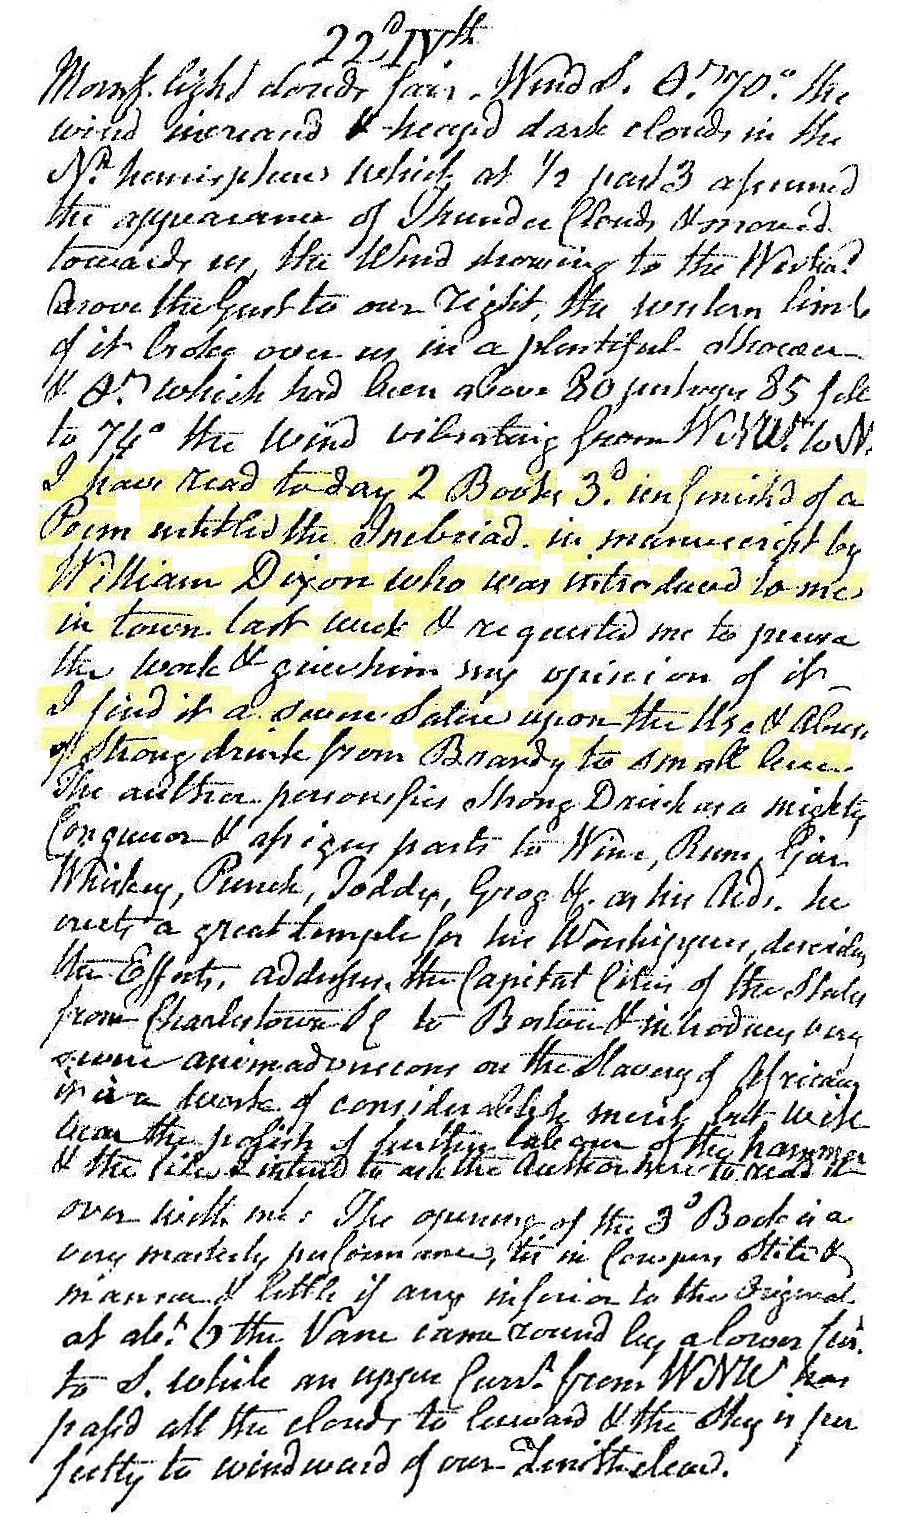 22d IVth
Morng. light clouds fair. Wind S. 70° the
wind increasd & heaped dark clouds in the
Nn. hemisphere which at 1/2 past 3 assumed
the appearance of Thunder Clouds & moved
towards us, the Wind to the Westwd
drove the Gust to our right, the western limb
of it broke over us in a plentiful shower
& which had been above 80 perhaps 85 fell
to 74° the Wind vibrating from WNW. to N.
I have read to day 2 Books 3d. unfinishd of a
Poem entitled the Inebriad. in manuscript by
William Dixon who was introduced to me
in town last week & requested me to peruse
the work & give him my opinion of it –
I find it a severe Satire upon the Use & Abuse
of Strong drink from Brandy to small beer.
The author personifies Strong Drink as a mighty
Conqueror & assigns parts to Wine, Rum, Gin
Whiskey, Punch, Toddy, Grog &c. as his Aids. he
erects a great temple for his Worshippers, describes
the Effects, addresses the Capital Cities of the States
from Charlestown SC to Boston & introduces very
severe animadversions on the Slavery of Africans
it is a work of considerable merit but will
bear the polish of further labour of the hammer
& the file I intend to ask the Author here to read it
over with me. The opening of the 3d Book is a
very masterly performance, tis in Cowpers Stile &
manner & little if any inferior to the Original.
at abt. 6 the Vane came round by a lower Curr.
to S. while an upper Currt. from WNW has
passd all the clouds to leeward & the Sky is per
fectly to windward of our Zenith clear.